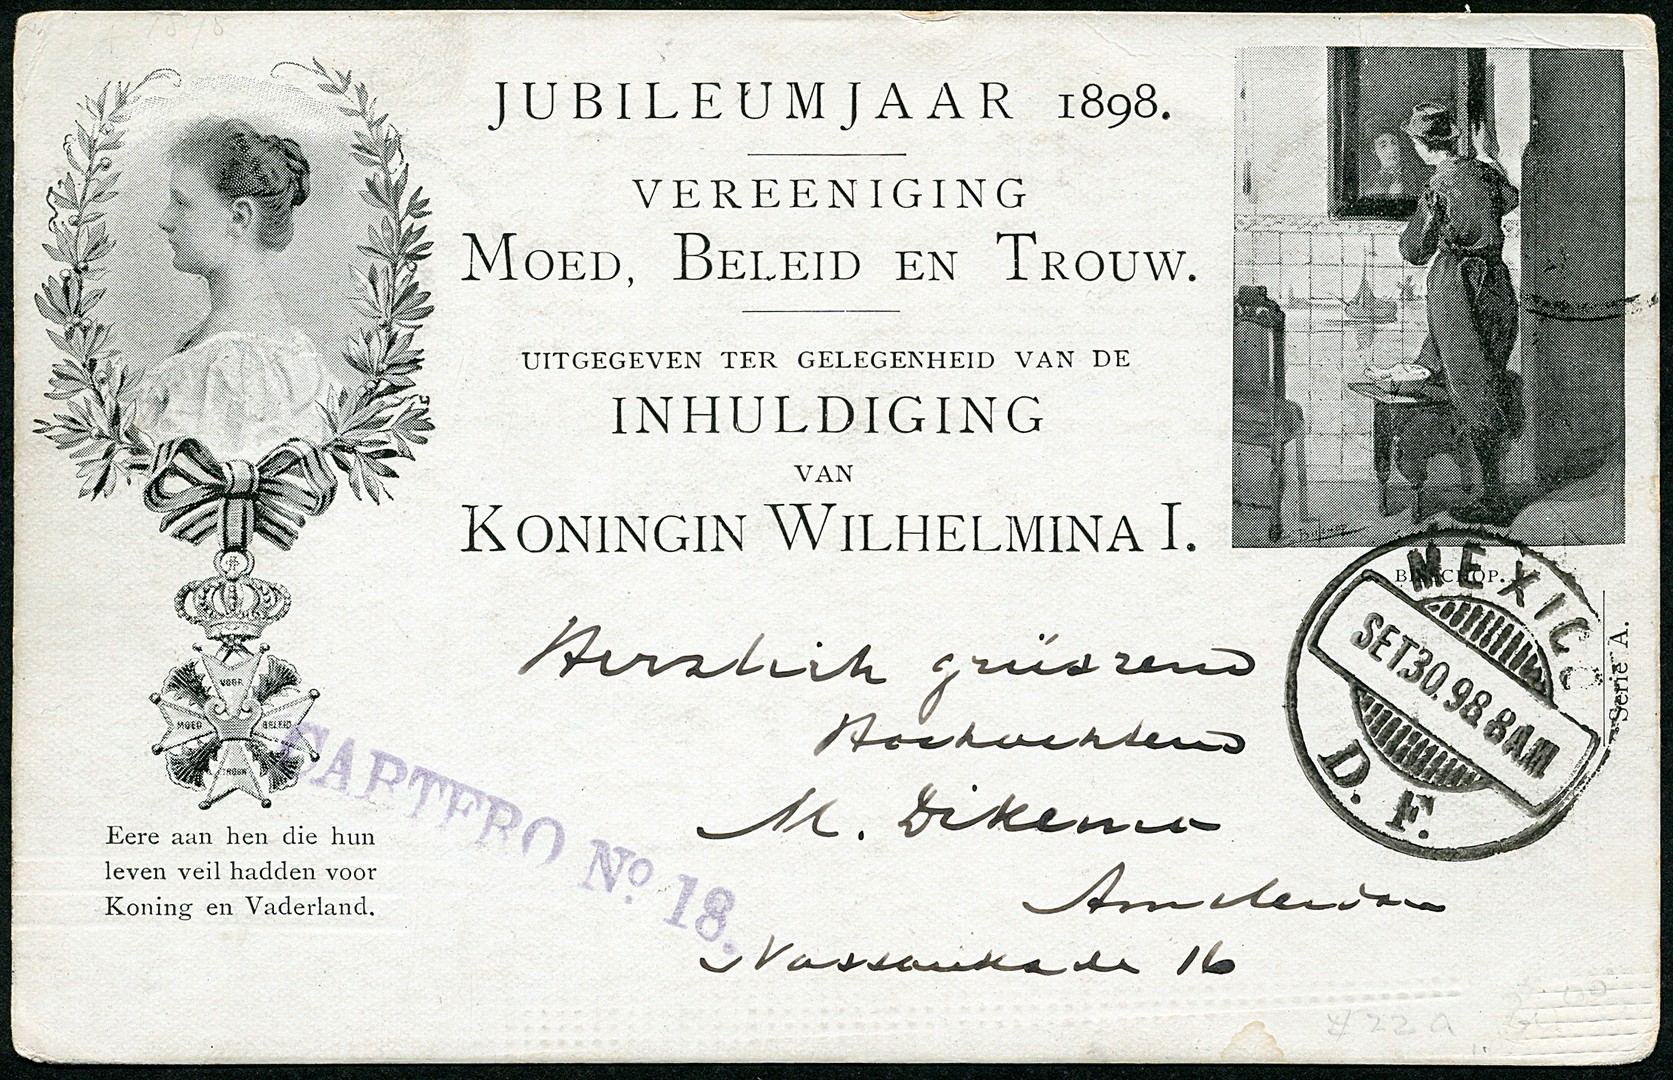 JUBILEUMJAAR 1898.
VEREENIGING
MOED, BELEID EN TROUW.
UITGEGEVEN TER GELEGENHEID VAN DE
INHULDIGING
VAN
KONINGIN WILHELMINA I.
VOOR
MOED BELEID
TROUW
Eere aan hen die hun
leven veil hadden voor
Koning en Vaderland.
BISSCHOP.
Serie A.
MEXICO
SET.30.98.8AM
D. F.
CARTERO Nº. 18.
Herzlich grüssend
Hochachtend
M. Dikema
Amsterdam
Nassaukade 16
422a